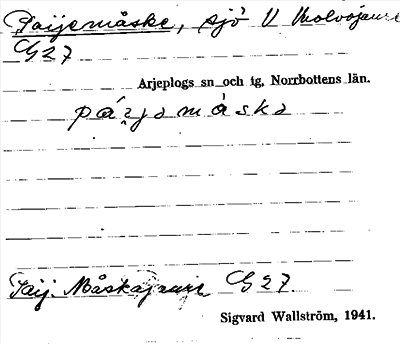 Paijemåske, sjö V Molvojaure
G27
Arjeplogs sn och tg, Norrbottens län.
Paij. Måskajaure G27.
Sigvard Wallström, 1941.